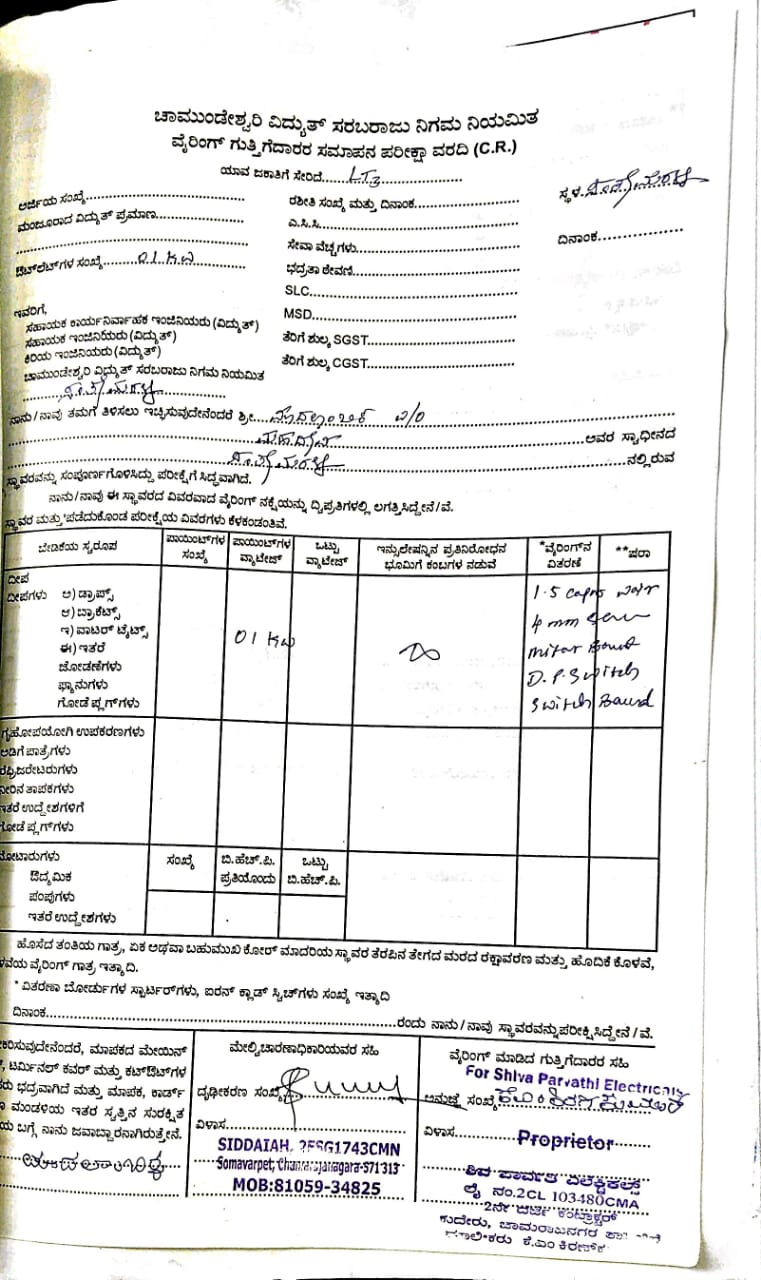 ಚಾಮುಂಡೇಶ್ವರಿ ವಿದ್ಯುತ್ ಸರಬರಾಜು ನಿಗಮ ನಿಯಮಿತ
ವೈರಿಂಗ್ ಗುತ್ತಿಗೆದಾರರ ಸಮಾಪನ ಪರೀಕ್ಷಾ ವರದಿ (C.R.)
ಯಾವ ಜಕಾತಿಗೆ ಸೇರಿದೆ.....LT3.....
ಅರ್ಜಿಯ ಸಂಖ್ಯೆ..........
ಮಂಜೂರಾದ ವಿದ್ಯುತ್ ಪ್ರಮಾಣ..........
ಔಟ್‌ಲೆಟ್‌ಗಳ ಸಂಖ್ಯೆ.....01 KW.....
ರಶೀತಿ ಸಂಖ್ಯೆ ಮತ್ತು ದಿನಾಂಕ..........
ಎ.ಸಿ.ಸಿ..........
ಸೇವಾ ವೆಚ್ಚಗಳು..........
ಭದ್ರತಾ ಠೇವಣಿ..........
SLC..........
MSD..........
ತೆರಿಗೆ ಶುಲ್ಕ SGST..........
ತೆರಿಗೆ ಶುಲ್ಕ CGST..........
ಸ್ಥಳ
ದಿನಾಂಕ..........
ಇವರಿಗೆ,
ಸಹಾಯಕ ಕಾರ್ಯನಿರ್ವಾಹಕ ಇಂಜಿನಿಯರು (ವಿದ್ಯುತ್)
ಸಹಾಯಕ ಇಂಜಿನಿಯರು (ವಿದ್ಯುತ್)
ಕಿರಿಯ ಇಂಜಿನಿಯರು (ವಿದ್ಯುತ್)
ಚಾಮುಂಡೇಶ್ವರಿ ವಿದ್ಯುತ್ ಸರಬರಾಜು ನಿಗಮ ನಿಯಮಿತ
ನಾನು/ನಾವು ತಮಗೆ ತಿಳಿಸಲು ಇಚ್ಛಿಸುವುದೇನೆಂದರೆ ಶ್ರೀ
ಅವರ ಸ್ವಾಧೀನದ
ನಲ್ಲಿರುವ
ಸ್ಥಾವರವನ್ನು ಸಂಪೂರ್ಣಗೊಳಿಸಿದ್ದು ಪರೀಕ್ಷೆಗೆ ಸಿದ್ಧವಾಗಿದೆ.
ನಾನು/ನಾವು ಈ ಸ್ಥಾವರದ ವಿವರವಾದ ವೈರಿಂಗ್ ನಕ್ಷೆಯನ್ನು ದ್ವಿಪ್ರತಿಗಳಲ್ಲಿ ಲಗತ್ತಿಸಿದ್ದೇನೆ/ವೆ.
ಸ್ಥಾವರ ಮತ್ತು ಪಡೆದುಕೊಂಡ ಪರೀಕ್ಷೆಯ ವಿವರಗಳು ಕೆಳಕಂಡಂತಿವೆ.
ಬೇಡಿಕೆಯ ಸ್ವರೂಪ ಪಾಯಿಂಟ್‌ಗಳ ಸಂಖ್ಯೆ ಪಾಯಿಂಟ್‌ಗಳ ವ್ಯಾಟೇಜ್ ಒಟ್ಟು ವ್ಯಾಟೇಜ್ ಇನ್ಸುಲೇಷನ್ನಿನ ಪ್ರತಿನಿರೋಧನ ಭೂಮಿಗೆ ಕಂಬಗಳ ನಡುವೆ *ವೈರಿಂಗ್‌ನ ವಿತರಣೆ **ಷರಾ
ದೀಪ
ದೀಪಗಳು ಅ) ಡ್ರಾಪ್ಸ್
ಆ) ಬ್ರಾಕೆಟ್ಸ್
ಇ) ವಾಟರ್ ಟೈಟ್ಸ್
ಈ) ಇತರೆ
ಜೋಡಣೆಗಳು
ಫ್ಯಾನುಗಳು
ಗೋಡೆ ಪ್ಲಗ್‌ಗಳು
01 KW
∞
1.5
4 mm
D.P. Switch
Switch
ಗೃಹೋಪಯೋಗಿ ಉಪಕರಣಗಳು
ಅಡಿಗೆ ಪಾತ್ರೆಗಳು
ರೆಫ್ರಿಜರೇಟರುಗಳು
ನೀರಿನ ತಾಪಕಗಳು
ಇತರೆ ಉದ್ದೇಶಗಳಿಗೆ
ಗೋಡೆ ಪ್ಲಗ್‌ಗಳು
ಮೋಟಾರುಗಳು ಸಂಖ್ಯೆ ಬಿ.ಹೆಚ್.ಪಿ. ಪ್ರತಿಯೊಂದು ಒಟ್ಟು ಬಿ.ಹೆಚ್.ಪಿ.
ಔದ್ಯಮಿಕ
ಪಂಪುಗಳು
ಇತರೆ ಉದ್ದೇಶಗಳು
ಹೊಸೆದ ತಂತಿಯ ಗಾತ್ರ, ಏಕ ಅಥವಾ ಬಹುಮುಖಿ ಕೋರ್ ಮಾದರಿಯ ಸ್ಥಾವರ ತೆರಪಿನ ತೇಗದ ಮರದ ರಕ್ಷಾವರಣ ಮತ್ತು ಹೊದಿಕೆ ಕೊಳವೆ,
ವೈರಿಂಗ್ ಗಾತ್ರ ಇತ್ಯಾದಿ.
* ವಿತರಣಾ ಬೋರ್ಡುಗಳ ಸ್ಟಾರ್ಟರ್‌ಗಳು, ಐರನ್ ಕ್ಲಾಡ್ ಸ್ವಿಚ್‌ಗಳು ಸಂಖ್ಯೆ ಇತ್ಯಾದಿ
ದಿನಾಂಕ..........ರಂದು ನಾನು/ನಾವು ಸ್ಥಾವರವನ್ನು ಪರೀಕ್ಷಿಸಿದ್ದೇನೆ/ವೆ.
ಮಾಪಕದ ಮೇಯಿನ್
ಟರ್ಮಿನಲ್ ಕವರ್ ಮತ್ತು ಕಟ್‌ಔಟ್‌ಗಳ
ಭದ್ರವಾಗಿದೆ ಮತ್ತು ಮಾಪಕ, ಕಾರ್ಡ್
ಮಂಡಳಿಯ ಇತರ ಸ್ವತ್ತಿನ ಸುರಕ್ಷಿತ
ಬಗ್ಗೆ ನಾನು ಜವಾಬ್ದಾರನಾಗಿರುತ್ತೇನೆ.
ಮೇಲ್ವಿಚಾರಣಾಧಿಕಾರಿಯವರ ಸಹಿ
ದೃಢೀಕರಣ ಸಂಖ್ಯೆ
ವಿಳಾಸ..........
SIDDAIAH. 2ESG1743CMN
Somavarpet, Chamarajanagara-571313
MOB:81059-34825
ವೈರಿಂಗ್ ಮಾಡಿದ ಗುತ್ತಿಗೆದಾರರ ಸಹಿ
For Shiva Parvathi Electricals
ಅನುಜ್ಞೆ ಸಂಖ್ಯೆ
ವಿಳಾಸ.....Proprietor.....
ಶಿವ ಪಾರ್ವತಿ ಎಲೆಕ್ಟ್ರಿಕಲ್ಸ್
ಲೈ ನಂ.2CL 103480CMA
2ನೇ ದರ್ಜೆ ಕಂಟ್ರಾಕ್ಟರ್
ಕುದೇರು, ಚಾಮರಾಜನಗರ
ಮಾಲೀಕರು ಕೆ.ಎಂ ಕಿರಣ್